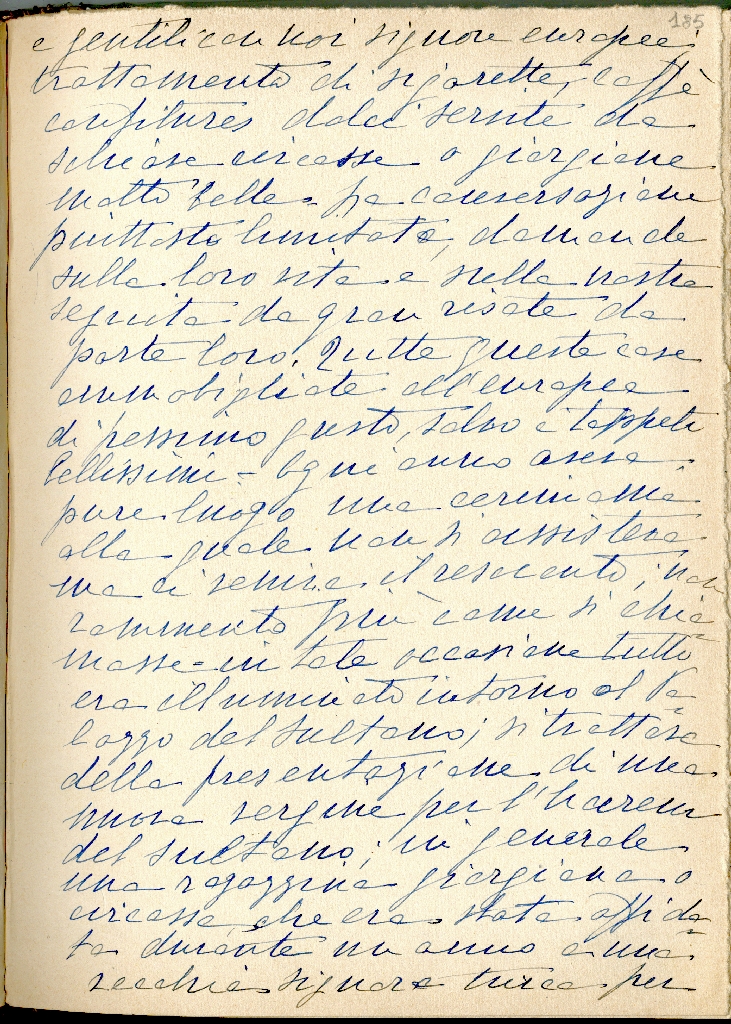 185
e gentili con noi signore europee;
trattamento di sigarette, caffè
confitures dolci servite da
schiave circasse o giorgiane
molto belle - fra conversazione
piuttosto limitata, domande
sulla loro vita e sulla nostra
seguita da gran risate da
parte loro. Tutte queste case
ammobigliate all'europea
di pessimo gusto, salvo i tappeti
bellissimi - Ogni anno aveva
pure luogo una cerimonia
alla quale non si assisteva
ma ci veniva il resoconto; non
rammento più come si chia=
masse - in tale occasione tutto
era illuminato intorno al Pa=
lazzo del Sultano; si trattava
della presentazione di una
nuova vergine per l'harem
del Sultano; in generale
una ragazzina giorgiana o
circassa che era stata affida=
ta durante un anno a una
vecchia signora turca per